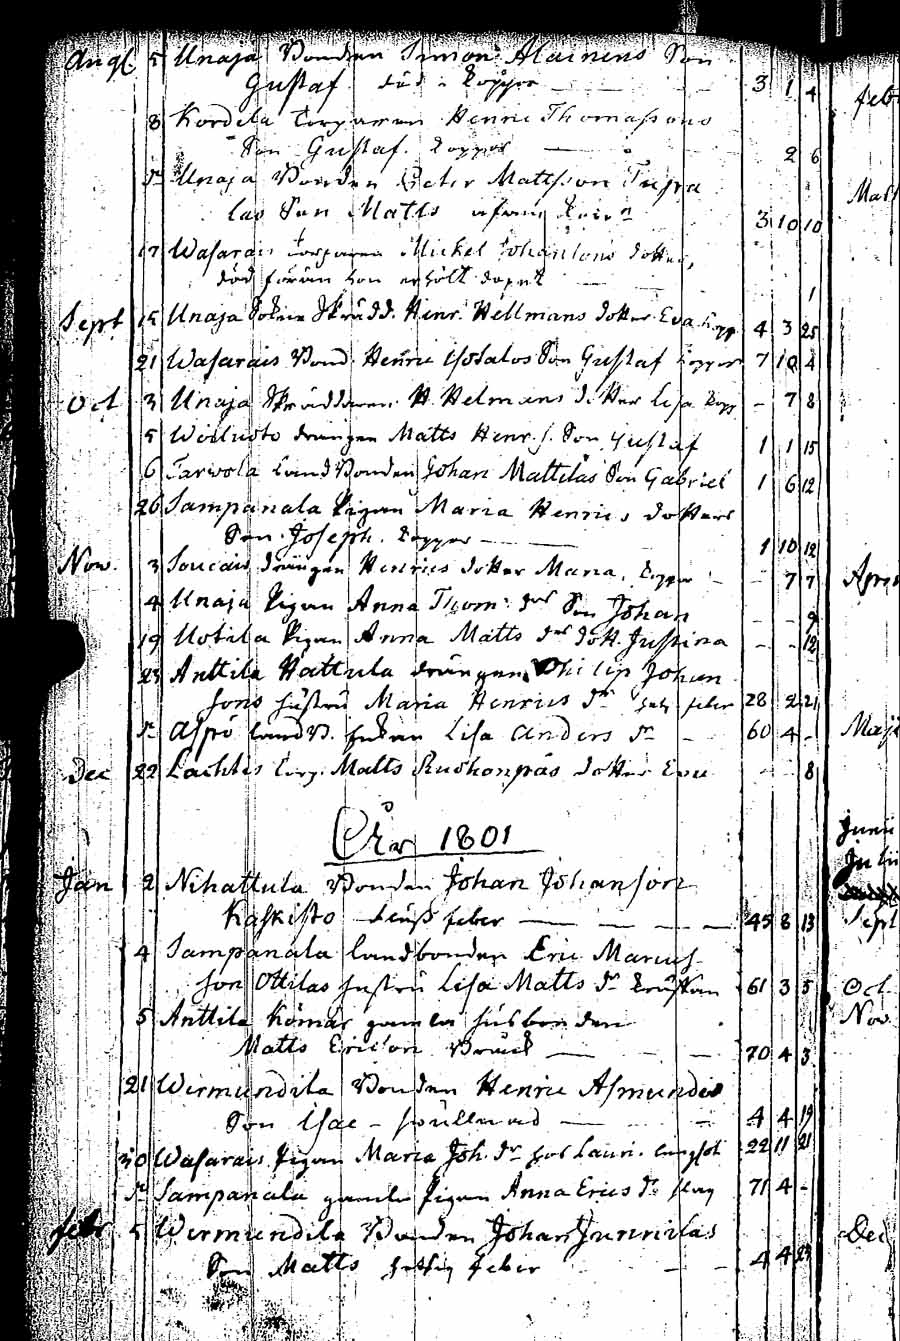 Aug. 5 Unaja Bonden Simon Alainens Son
Gustaf död i koppor 3 1 4
8 Kordela torparen Henric Thomassons
Son Gustaf. koppor 2 6
Dn Unaja Bonden Peter Mattsson
Son Matts 3 10 10
17 Wasarais torparen Mickel Johanssons dotter,
död förän hon erhölt dopet 1
Sept 15 Unaja Skrädd. Henr. Hellmans dotter Eva kopp 4 3 25
21 Wasarais Bond. Henric Son Gustaf koppor 7 10 4
Oct 3 Unaja Skräddaren H. Helmans dotter Lisa kopp - 7 8
5 drängen Matts Henr. s. Son Gustaf 1 1 15
6 Tarvola Landbonden Johan Mattilas Son Gabriel 1 6 12
26 Sampanala Pigan Maria Henrics dotters
Son Joseph. koppor 1 10 12
Nov. 3 Soucais drängen Henrics dotter Maria, koppor - 7 7
4 Unaja Pigan Anna Thom: drs Son Johan - - 9
19 Uotila Pigan Anna Matts drs dott. Justina - - 12
23 Anttila Hattula drängen Philip Johan
sons hustru Maria Henrics dr feber 28 2 21
Dn Aspö landb. Lisa Anders dr 60 4 -
Dec 22 Lachtis torp. Matts dotter Eva - - 8
År 1801
Jan 2 Nihattula Bonden Johan Johansson
Kaskisto feber 45 8 13
4 Sampanala landbonden Eric Marcus
son Ottilas hustru Lisa Matts dr 61 3 5
5 Anttila Kömär gamla husbonden
Matts Ericson Bråck 70 4 3
21 Wermundila Bonden Henric Asmundis
Son Isac 4 4 19
30 Wasarais Pigan Maria Joh. dr 22 11 21
Dn Sampanala gamla Pigan Anna Erics dr slag 71 4 -
febr 5 Wermundila Bonden Johan Junnilas
Son Matts hettig feber 4 4 23
febr
Mart
April
Maji
Junii
Julii
Sept
Oct
Nov
Dec